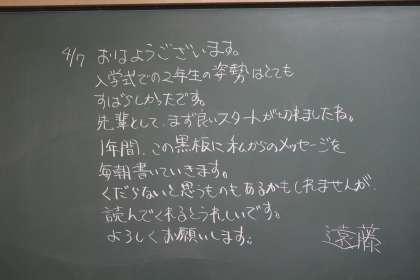 4/7 おはようございます。
入学式での2年生の姿勢はとても
すばらしかったです。
先輩として、まず良いスタートが切れましたね。
1年間、この黒板に私からのメッセージを
毎朝書いていきます。
くだらないと思うものもあるかもしれませんが、
読んでくれるとうれしいです。
よろしくお願いします。
遠藤